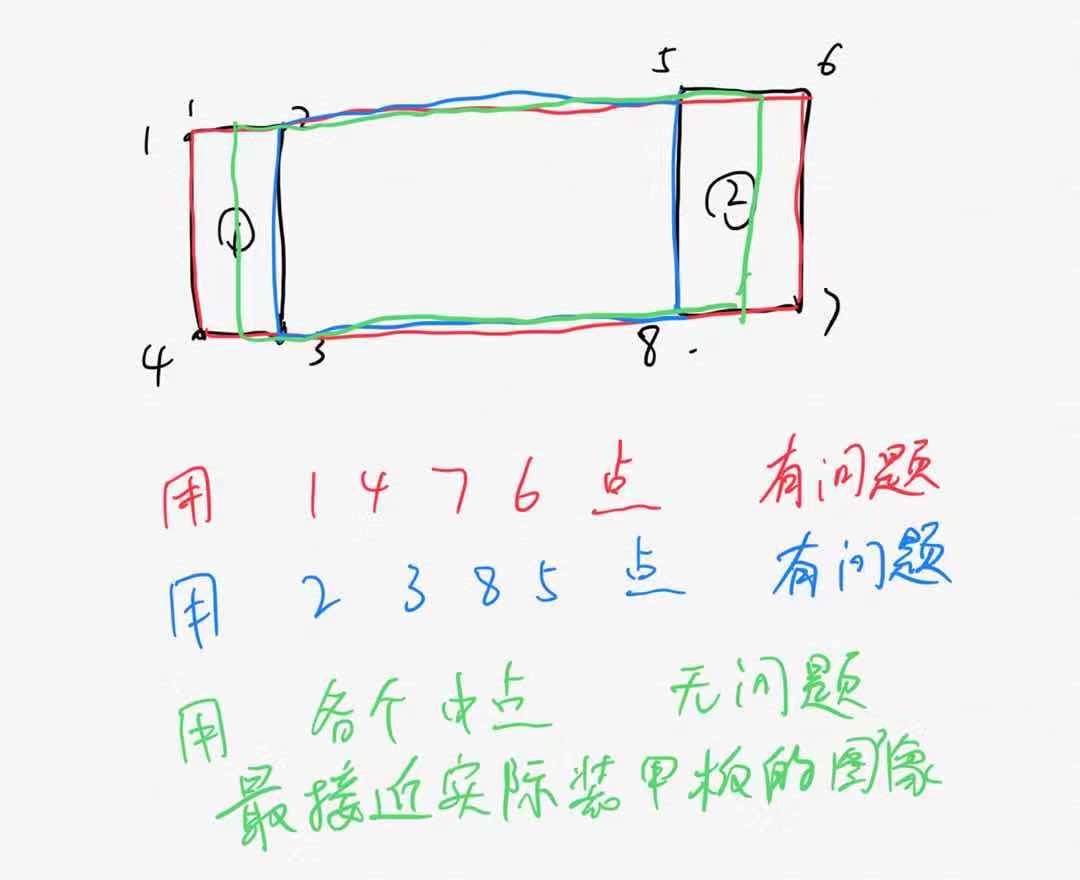 5 6
1 1 2
① ②
4 3 8 7
用 1 4 7 6 点 有问题
用 2 3 8 5 点 有问题
用 各个中点 无问题
最接近实际装甲板的图像